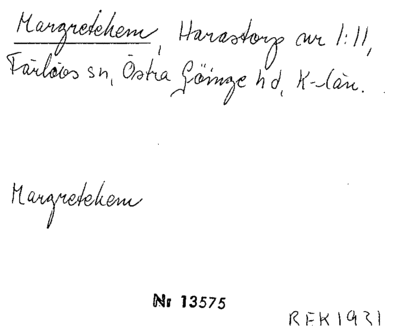 Margretehem, Harastorp nr 1:11,
Färlövs sn, Östra Göinge hd, K-län.
Margretehem
Nr 13575
REK 1931